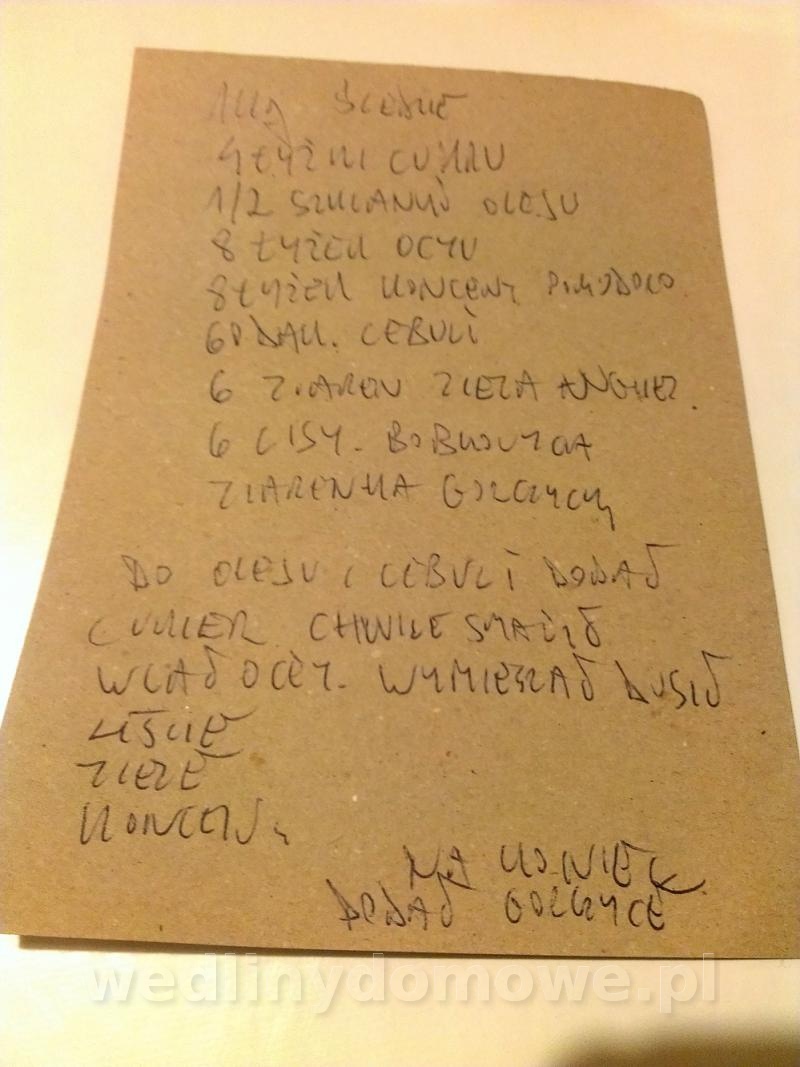 1KG ŚLEDZIE
4 ŁYŻKI CUKRU
1/2 SZKLANKI OLEJU
8 ŁYŻEK OCTU
8 ŁYŻEK KONCENT POMIDORO
60 DAK. CEBULI
6 ZIAREN ZIELA ANGIEL.
6 LIST. BOBKOWYCH
ZIARENKA GORCZYCY
DO OLEJU I CEBULI DODAĆ
CUKIER CHWILE SMAŻYĆ
WLAĆ OCET. WYMIESZAĆ DUSIĆ
LIŚCIE
ZIELE
KONCENT.
NA KONIEC
DODAĆ GORCZYCE
wedlinydomowe.pl